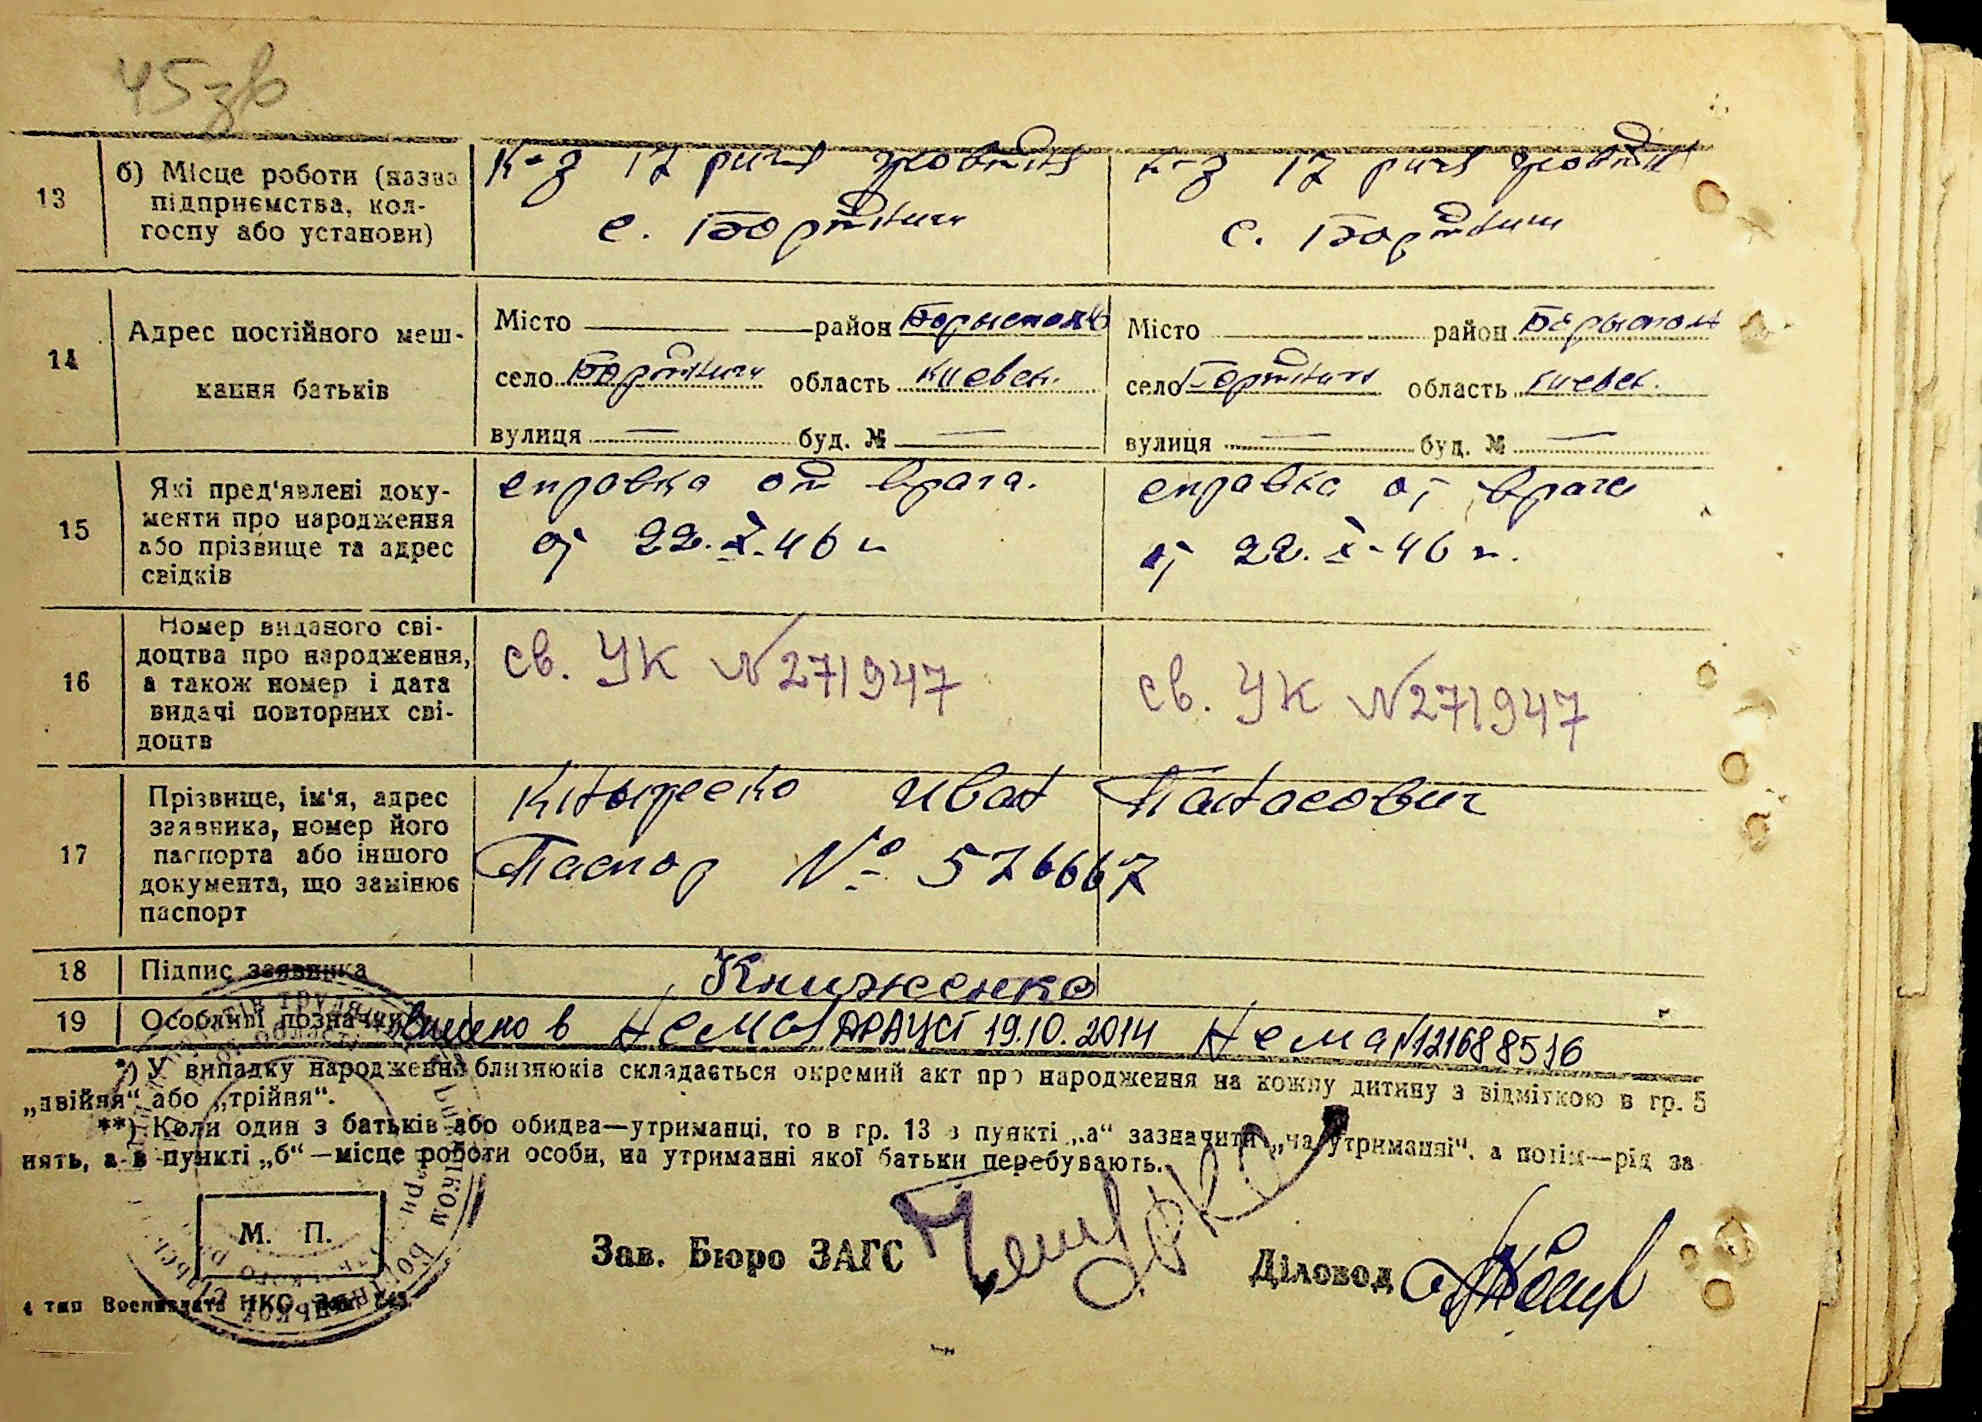 45зв
13 б) Місце роботи (назва підприємства, колгоспу або установи)
К-з 17 річч жовтня
с. Бортничи
к-з 17 річч жовтня
с. Бортничи
14 Адрес постійного меш-
кання батьків
Місто — район Борисполь
село Бортничи область Киевск.
вулиця — буд. № —
Місто район Борисполь
село Бортничи область Киевск.
вулиця — буд. № —
15 Які пред'явлені доку-
менти про народження
або прізвище та адрес
свідків
справка от врача.
от 22.X-46 г
справка от врача
от 22.X-46 г.
16 Номер виданого сві-
доцтва про народження,
а також номер і дата
видачі повторних сві-
доцтв
св. УК №271947
св. УК №271947
17 Прізвище, ім'я, адрес
заявника, номер його
паспорта або іншого
документа, що замінює
паспорт
Иван Панасович
Паспор № 576667
18 Підпис заявника
Книженко
19 Особливі позначки
внесено в Нема ДРАЦСГ 19.10.2014 Нема №121688516
*) У випадку народження близнюків складається окремий акт про народження на кожну дитину з відміткою в гр. 5
„двійня“ або „трійня“.
**) Коли один з батьків або обидва—утриманці, то в гр. 13 в пункті „а“ зазначити „на утриманні“, а потім—рід за
нять, а в пункті „б“—місце роботи особи, на утриманні якої батьки перебувають.
М. П.
Зав. Бюро ЗАГС
Діловод
4 тип Воениздата НКО